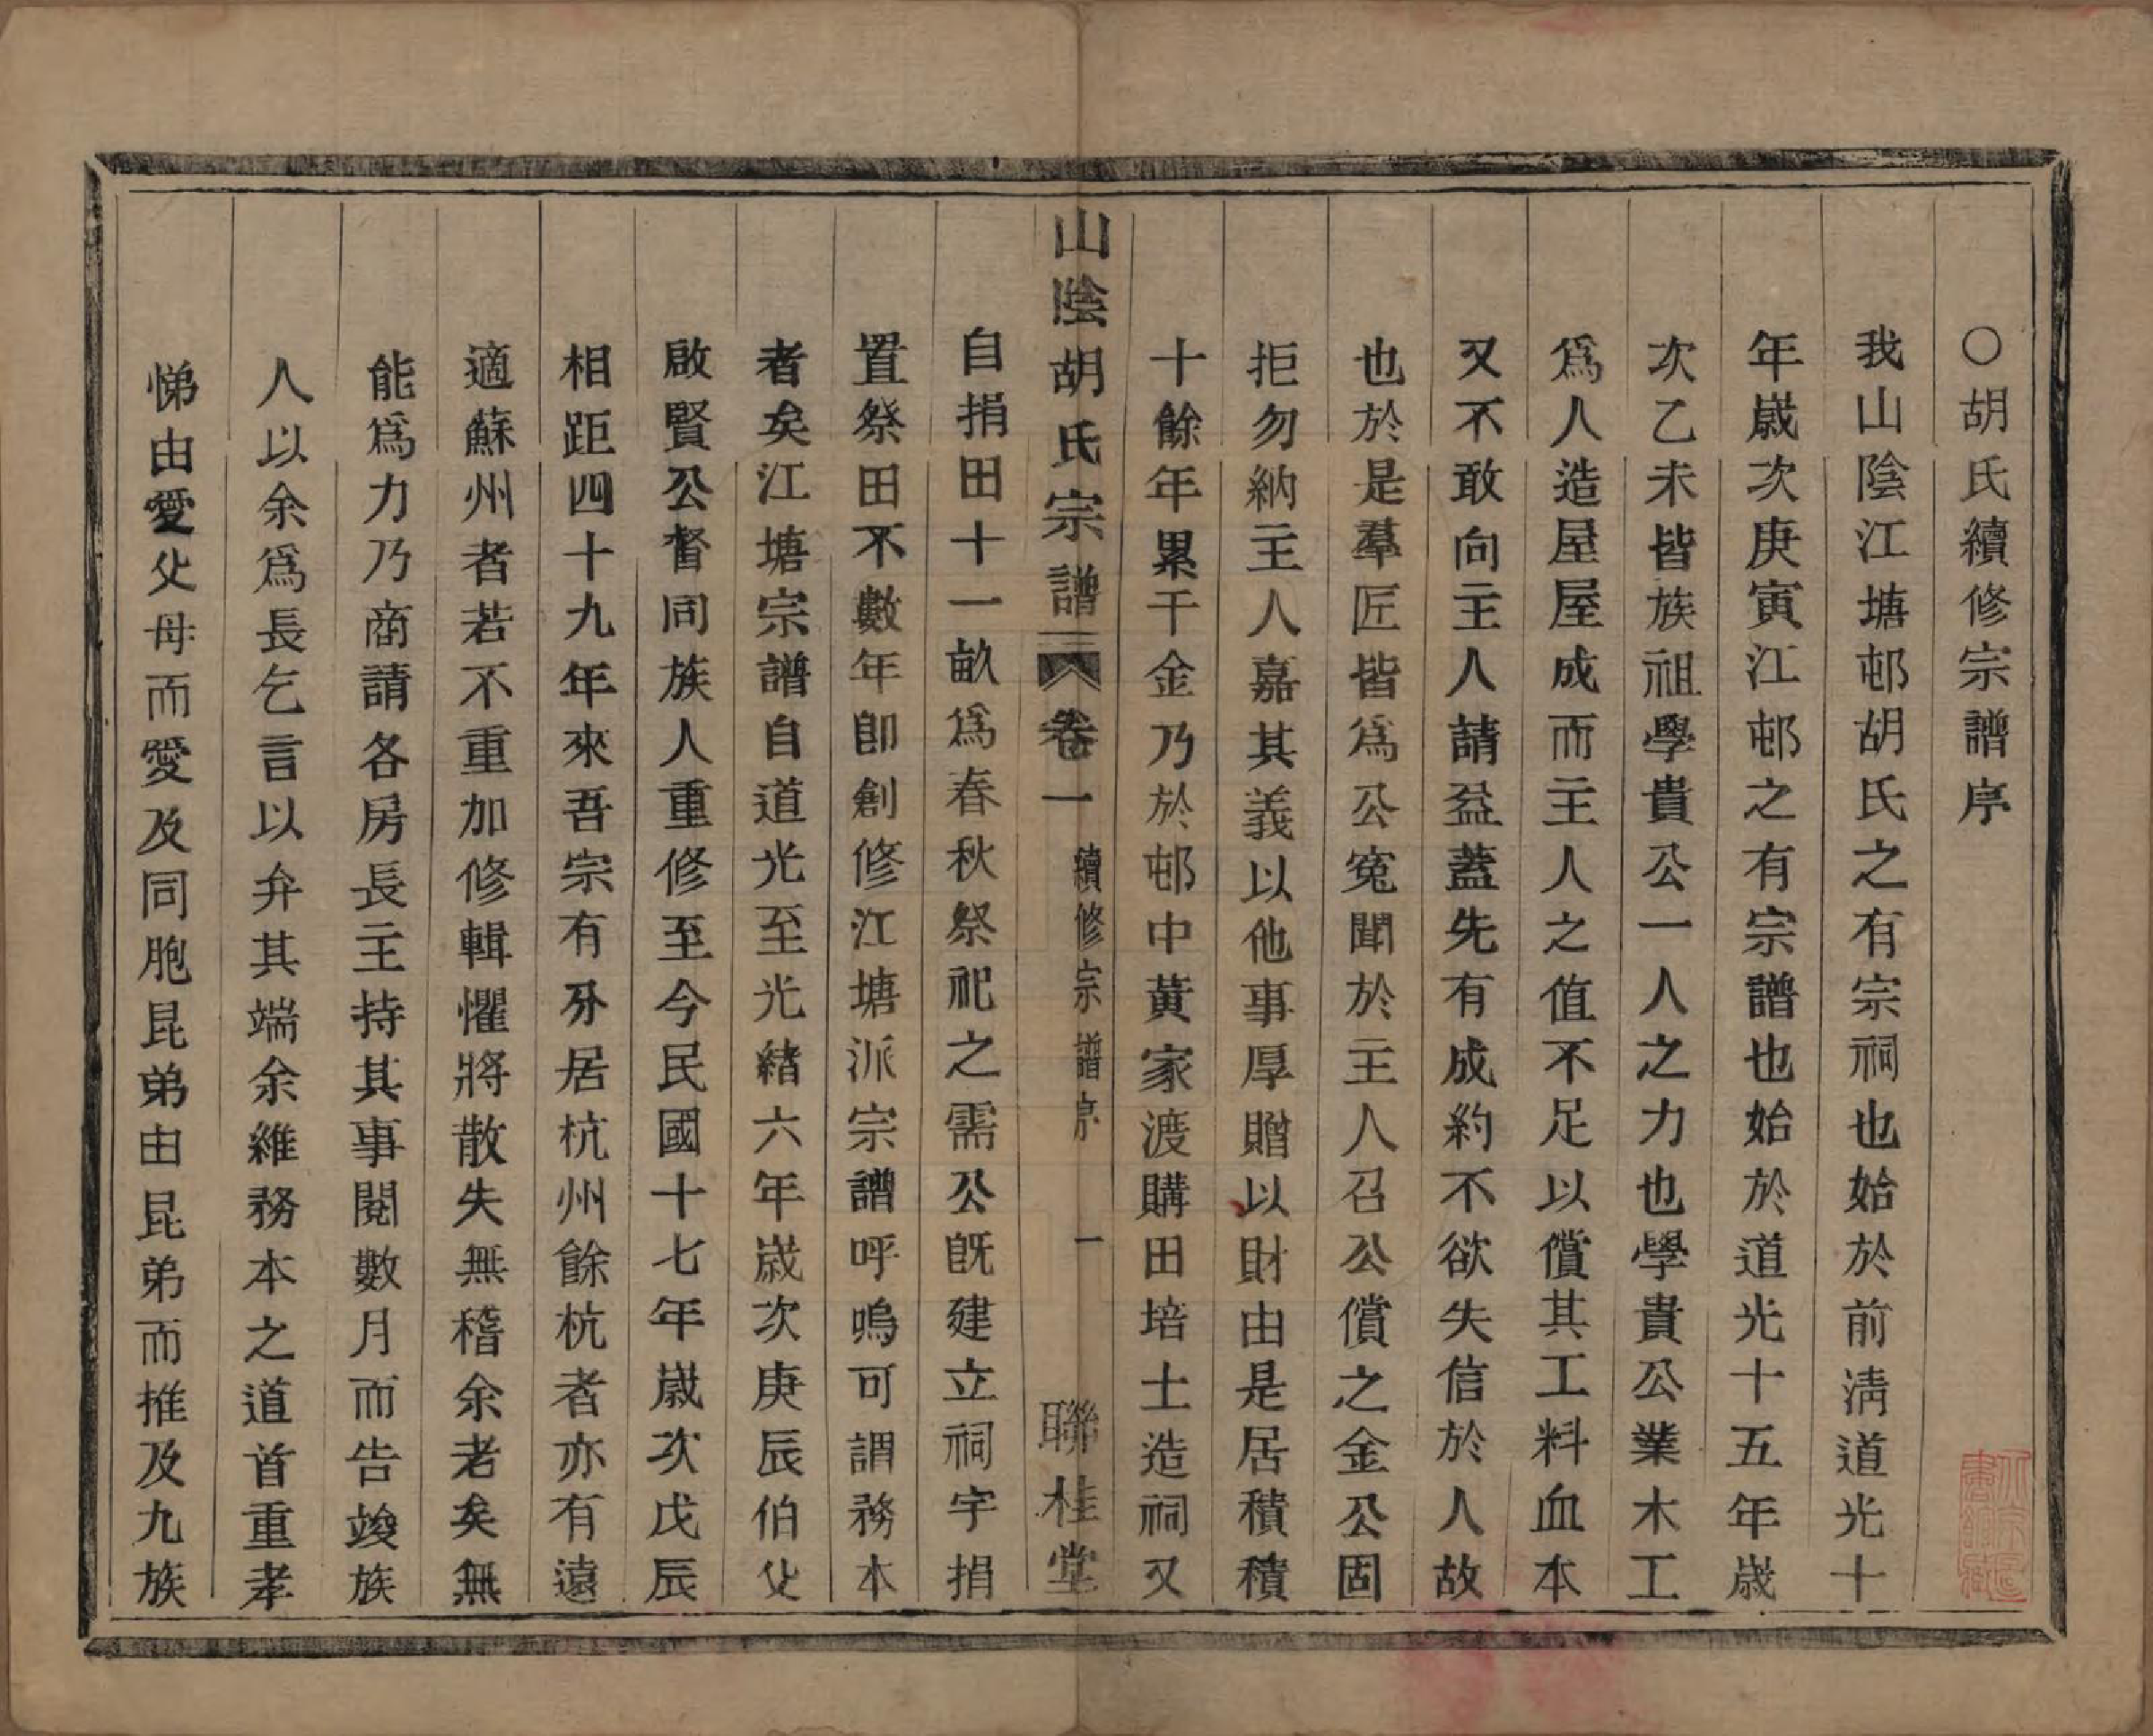 ○胡氏續修宗譜序
我山陰江塘邨胡氏之有宗祠也始於前淸道光十
年歲次庚寅江邨之有宗譜也始於道光十五年歲
次乙未皆族祖學貴公一人之力也學貴公業木工
爲人造屋屋成而主人之值不足以償其工料血本
又不敢向主人請益蓋先有成約不欲失信於人故
也於是羣匠皆爲公寃聞於主人召公償之金公固
拒勿納主人嘉其義以他事厚贈以財由是居積積
十餘年累千金乃於邨中黃家渡購田培土造祠又
山陰胡氏宗譜 卷一 續修宗譜序 一 聯桂堂
自捐田十一畝爲春秋祭祀之需公旣建立祠宇捐
置祭田不數年卽創修江塘派宗譜呼嗚可謂務本
者矣江塘宗譜自道光至光緖六年歲次庚辰伯父
啟賢公督同族人重修至今民國十七年歲次戊辰
相距四十九年來吾宗有分居杭州餘杭者亦有遠
適蘇州者若不重加修輯懼將散失無稽余老矣無
能爲力乃商請各房長主持其事閱數月而告竣族
人以余爲長乞言以弁其端余維務本之道首重孝
悌由愛父母而愛及同胞昆弟由昆弟而推及九族